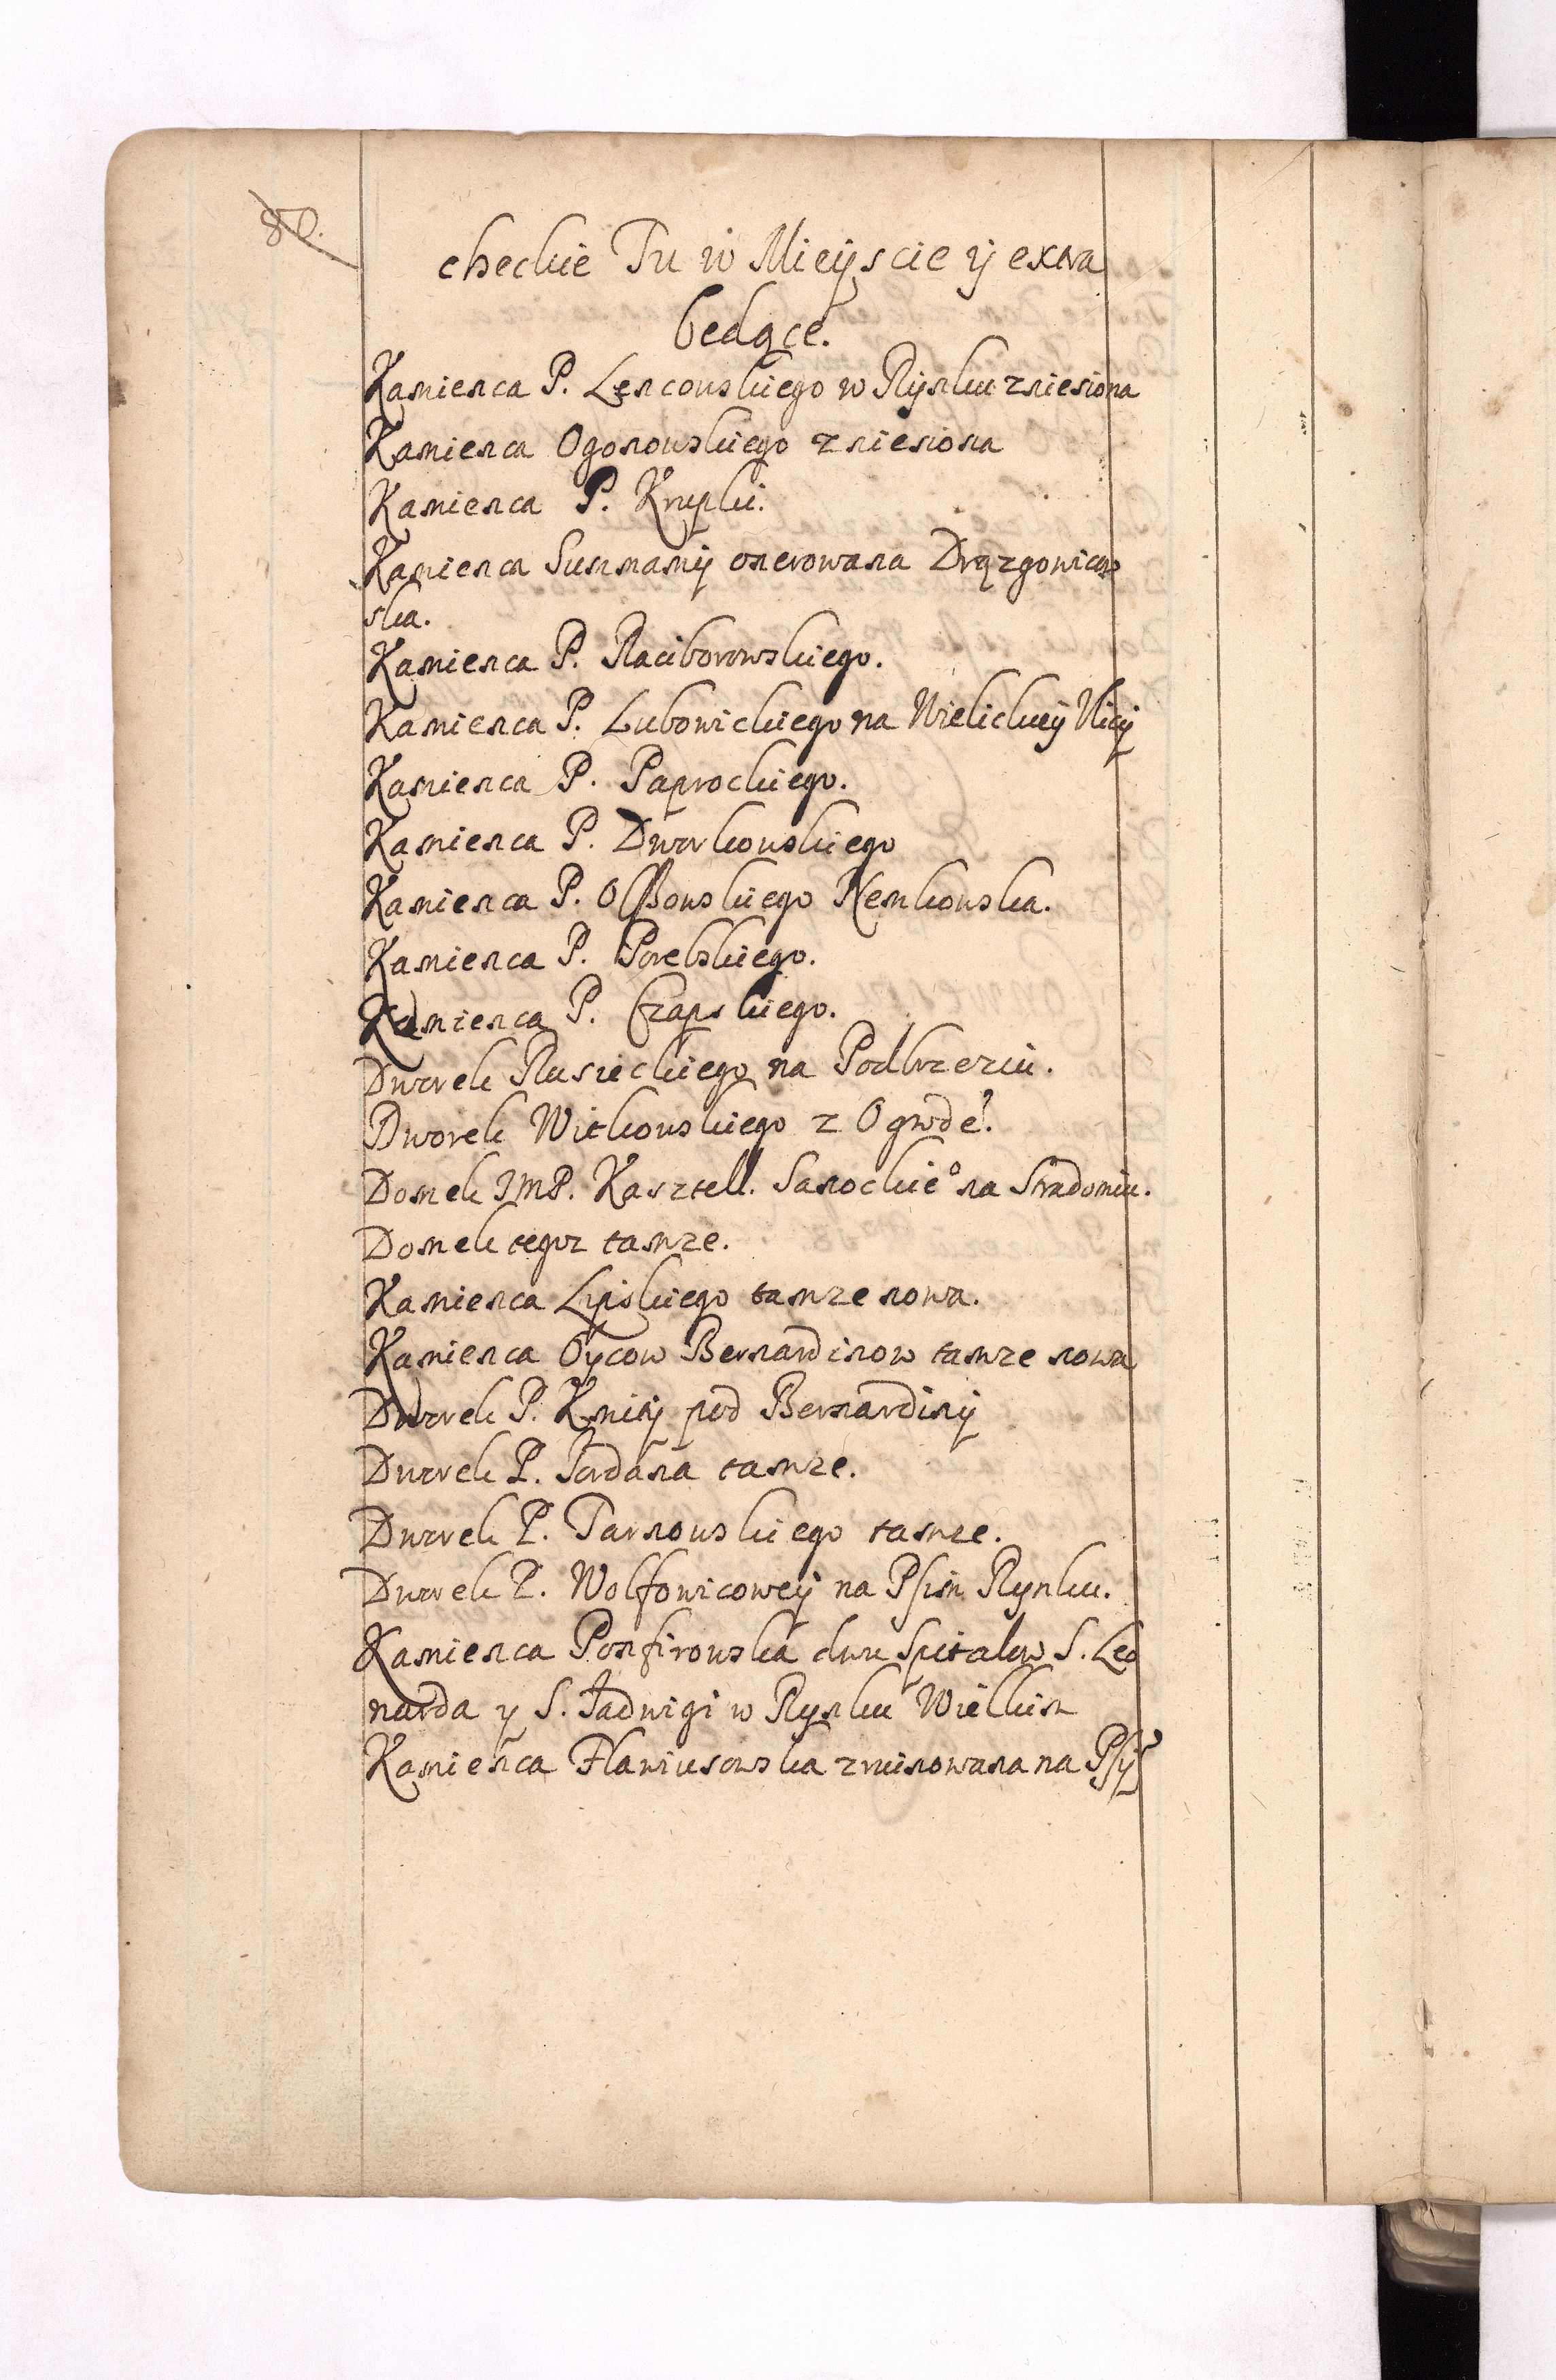 80.
checkie Tu w Mieyscie y extra
będące.
Kamienca P. Lęncowskiego w Rynku zniesiona
Kamienca Ogonowskiego zniesiona
Kamienca P. Krupki.
Kamienca Summamy onerowana Drązgowicow
ska.
Kamienca P. Raciborowskiego.
Kamienca P. Lubowickiego na Wielickiey Ulicy
Kamienca P. Paprockiego.
Kamienca P. Dworkowskiego
Kamienca P. Olszowskiego Hemkowska.
Kamienca P. Porebskiego.
Kamienca P. Czapskiego.
Dworek Rusieckiego na Podbrzeziu.
Dworek Witkowskiego z Ogrode.
Domek JMP. Kasztell. Sanockieo na Stradomiu.
Domek tegoz tamze.
Kamienca Lipskiego tamze nowa.
Kamienca Oycow Bernardinow tamze nowa
Dworek P. Kmity pod Bernardiny
Dworek P. Jordana tamze.
Dworek P. Tarnowskiego tamze.
Dworek P. Wolfowicowey na Psim Rynku.
Kamienca Ponfirowska dwu Spitalow S. Leo
narda y S. Jadwigi w Rynku Wielkim
Kamienca Flawiusowska zruinowana na